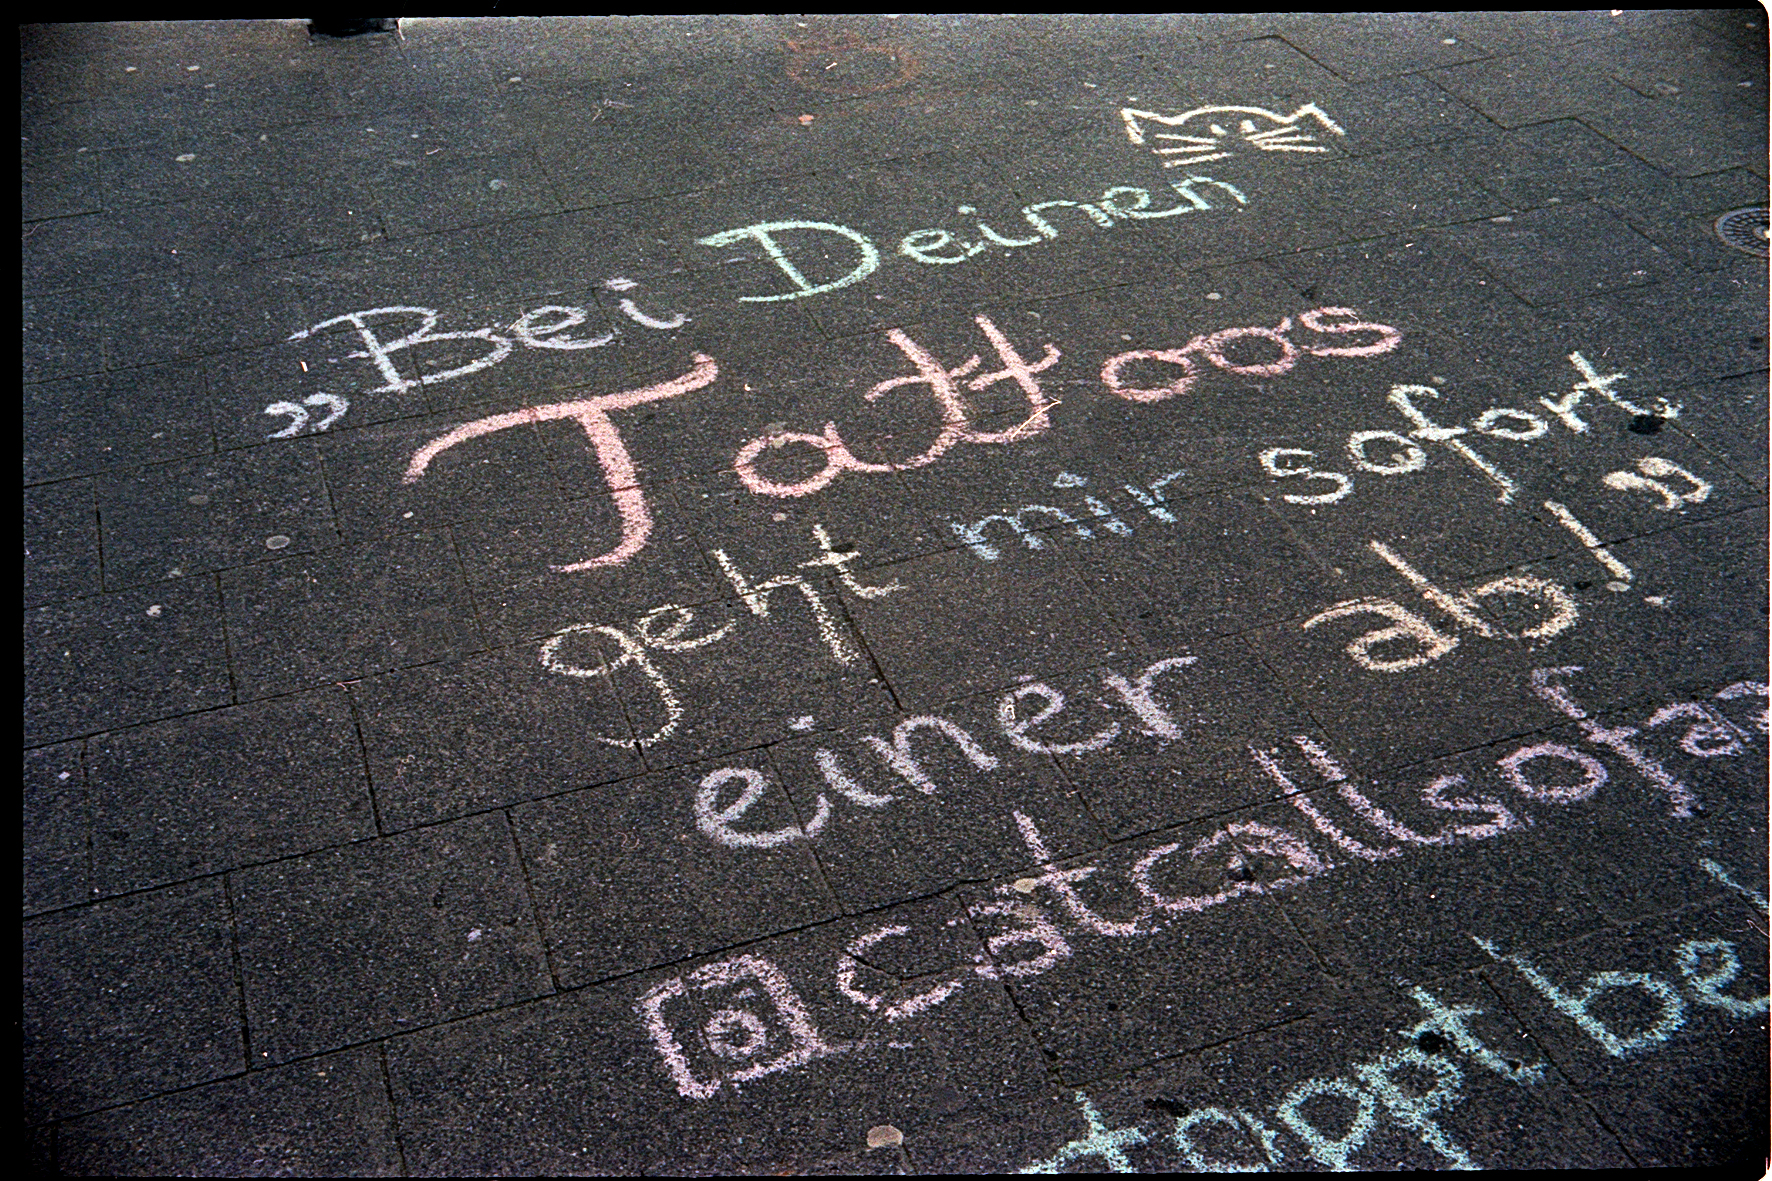 „Bei Deinen
Tattoos
geht mir sofort
einer ab!”
catcallsofaa